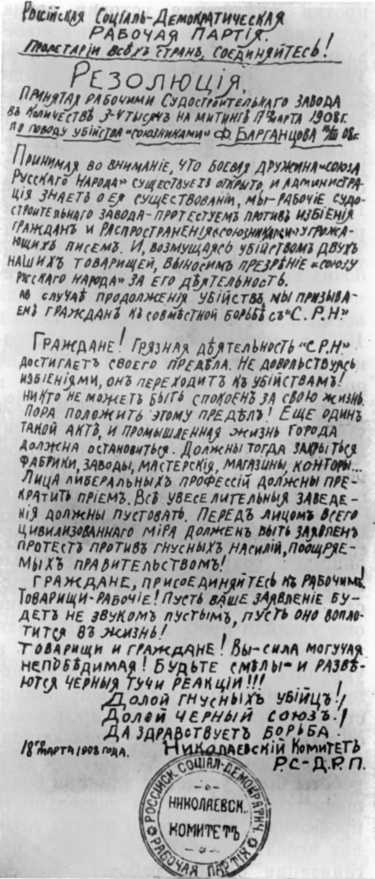 Россійская Соціаль-Демократическая
РАБОЧАЯ ПАРТІЯ.
Пролетаріи всѣхъ странъ, соединяйтесь!
РЕЗОЛЮЦІЯ,
ПРИНЯТАЯ РАБОЧИМИ СУДОСТРОИТЕЛЬНАГО ЗАВОДА
ВЪ КОЛИЧЕСТВѢ 3-4 ТЫСЯЧЪ НА МИТИНГѢ 17го МАРТА 1908 г.
ПО ПОВОДУ УБІЙСТВА «СОЮЗНИКАМИ» Ф. БАРГАНЦОВА
ПРИНИМАЯ ВО ВНИМАНІЕ, ЧТО БОЕВАЯ ДРУЖИНА «СОЮЗА
РУССКАГО НАРОДА» СУЩЕСТВУЕТЪ ОТКРЫТО, И АДМИНИСТРА-
ЦІЯ ЗНАЕТЪ О ЕЯ СУЩЕСТВОВАНІИ, МЫ-РАБОЧІЕ СУДО-
СТРОИТЕЛЬНАГО ЗАВОДА-ПРОТЕСТУЕМЪ ПРОТИВЪ ИЗБІЕНІЯ
ГРАЖДАНЪ И РАСПРОСТРАНЕНІЯ «СОЮЗНИКАМИ» УГРОЖА-
ЮЩИХЪ ПИСЕМЪ. И, ВОЗМУЩАЯСЬ УБІЙСТВОМЪ ДВУХЪ
НАШИХЪ ТОВАРИЩЕЙ, ВЫНОСИМЪ ПРЕЗРѢНІЕ «СОЮЗУ
РУССКАГО НАРОДА» ЗА ЕГО ДѢЯТЕЛЬНОСТЬ.
ВЪ СЛУЧАѢ ПРОДОЛЖЕНІЯ УБІЙСТВЪ, МЫ ПРИЗЫВА-
ЕМЪ ГРАЖДАНЪ КЪ СОВМѢСТНОЙ БОРЬБѢ СЪ "С.Р.Н."
ГРАЖДАНЕ! ГРЯЗНАЯ ДѢЯТЕЛЬНОСТЬ "С.Р.Н"
ДОСТИГАЕТЪ СВОЕГО ПРЕДѢЛА. НЕ ДОВОЛЬСТВУЯСЬ
ИЗБІЕНІЯМИ, ОНЪ ПЕРЕХОДИТЪ КЪ УБІЙСТВАМЪ!
НИКТО НЕ МОЖЕТЪ БЫТЬ СПОКОЕНЪ ЗА СВОЮ ЖИЗНЬ.
ПОРА ПОЛОЖИТЬ ЭТОМУ ПРЕДѢЛЪ! ЕЩЕ ОДИНЪ
ТАКОЙ АКТЪ, И ПРОМЫШЛЕННАЯ ЖИЗНЬ ГОРОДА
ДОЛЖНА ОСТАНОВИТЬСЯ. ДОЛЖНЫ ТОГДА ЗАКРЫТЬСЯ
ФАБРИКИ, ЗАВОДЫ, МАСТЕРСКІЯ, МАГАЗИНЫ, КОНТОРЫ...
ЛИЦА ЛИБЕРАЛЬНЫХЪ ПРОФЕССІЙ ДОЛЖНЫ ПРЕ-
КРАТИТЬ ПРІЕМЪ. ВСѢ УВЕСЕЛИТЕЛЬНЫЯ ЗАВЕДЕ-
НІЯ ДОЛЖНЫ ПУСТОВАТЬ. ПЕРЕДЪ ЛИЦОМЪ ВСЕГО
ЦИВИЛИЗОВАННАГО МІРА ДОЛЖЕНЪ БЫТЬ ЗАЯВЛЕНЪ
ПРОТЕСТЪ ПРОТИВЪ ГНУСНЫХЪ НАСИЛІЙ, ПООЩРЯЕ-
МЫХЪ ПРАВИТЕЛЬСТВОМЪ!
ГРАЖДАНЕ, ПРИСОЕДИНЯЙТЕСЬ КЪ РАБОЧИМЪ!
ТОВАРИЩИ-РАБОЧІЕ! ПУСТЬ ВАШЕ ЗАЯВЛЕНІЕ БУ-
ДЕТЪ НЕ ЗВУКОМЪ ПУСТЫМЪ, ПУСТЬ ОНО ВОПЛО-
ТИТСЯ ВЪ ЖИЗНЬ!
ТОВАРИЩИ И ГРАЖДАНЕ! ВЫ-СИЛА МОГУЧАЯ
НЕПОБѢДИМАЯ! БУДЬТЕ СМѢЛЫ-И РАЗВѢ-
ЮТСЯ ЧЕРНЫЯ ТУЧИ РЕАКЦІИ!!!
ДОЛОЙ ГНУСНЫХЪ УБІЙЦЪ!
ДОЛОЙ ЧЕРНЫЙ СОЮЗЪ!
ДА ЗДРАВСТВУЕТЪ БОРЬБА.
18го МАРТА 1908 ГОДА. НИКОЛАЕВСКІЙ КОМИТЕТЪ
Р.С-Д.Р.П.
РОССІЙСК. СОЦІАЛ-ДЕМОКРАТИЧ.
НИКОЛАЕВСК.
КОМИТЕТЪ
РАБОЧАЯ ПАРТІЯ